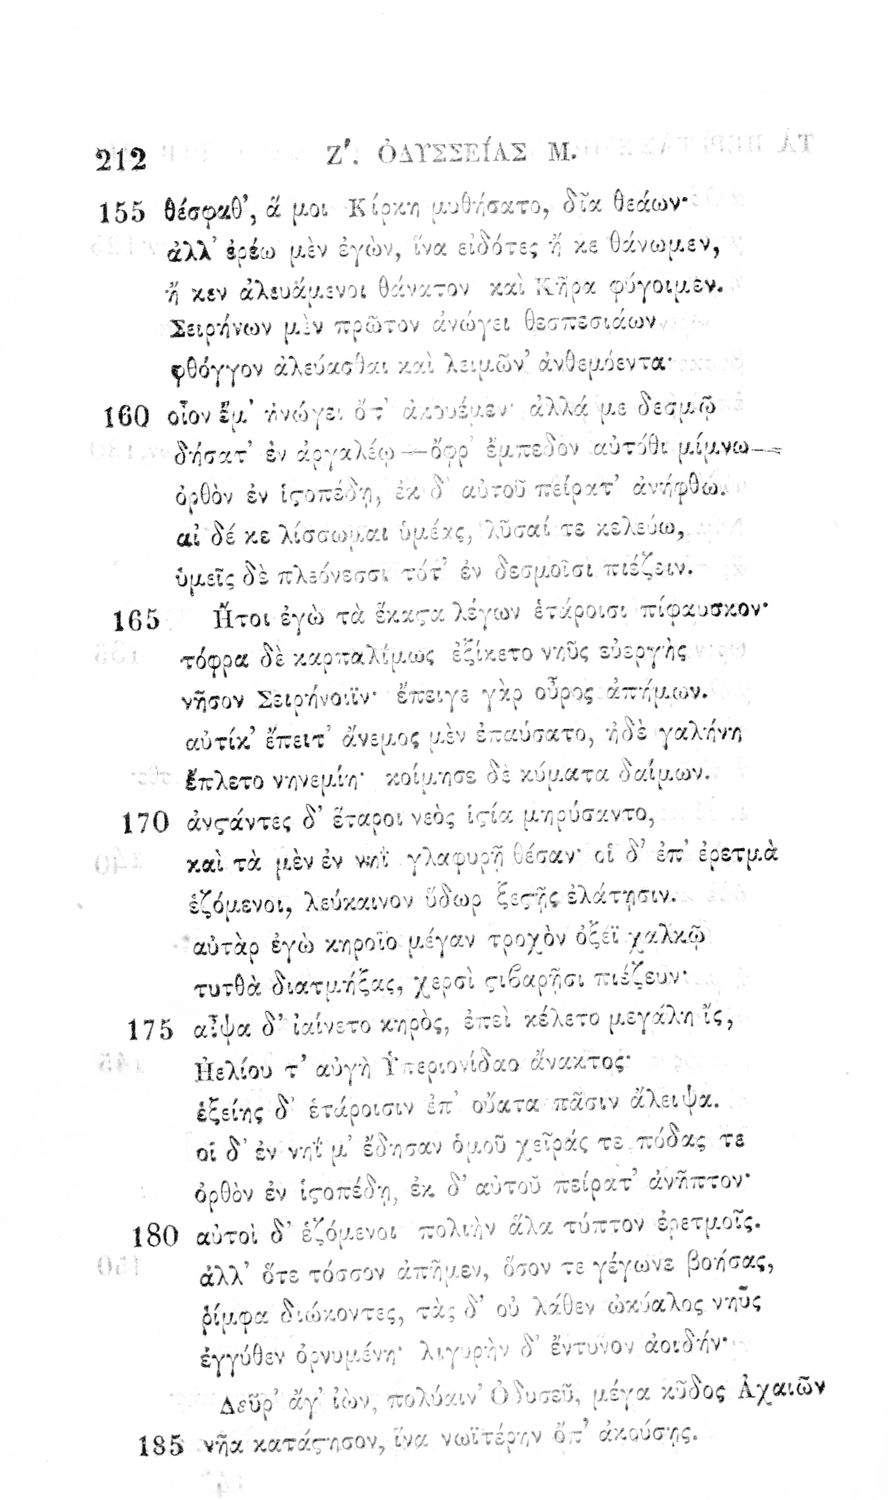 212 Ζʹ. ὈΔΥΣΣΕΊΑΣ Μ.
155 θέσφαθ', ἅ μοι Κίρκη μυθήσατο, δῖα θεάων·
ἀλλ' ἐρέω μὲν ἐγὼν, ἵνα εἰδότες ἤ κε θάνωμεν,
ἤ κεν ἀλευάμενοι θάνατον καὶ Κῆρα φύγοιμεν.
Σειρήνων μὲν πρῶτον ἀνώγει θεσπεσιάων
φθόγγον ἀλεύασθαι καὶ λειμῶν' ἀνθεμόεντα·
160 οἶον ἔμ' ἠνώγει ὄπ' ἀκουέμεν· ἀλλά με δεσμῷ
δήσατ' ἐν ἀργαλέῳ — ὄφρ' ἔμπεδον αὐτόθι μίμνω —
ὀρθὸν ἐν ἱϛοπέδῃ, ἐκ δ' αὐτοῦ πείρατ' ἀνήφθω.
αἰ δέ κε λίσσωμαι ὑμέας, λῦσαί τε κελεύω,
ὑμεῖς δὲ πλεόνεσσι τότ' ἐν δεσμοῖσι πιέζειν.
165 Ἤτοι ἐγὼ τὰ ἕκαϛα λέγων ἑτάροισι πίφαυσκον·
τόφρα δὲ καρπαλίμως ἐξίκετο νηῦς εὐεργὴς
νῆσον Σειρήνοιϊν· ἔπειγε γὰρ οὖρος ἀπήμων.
αὐτίκ' ἔπειτ' ἄνεμος μὲν ἐπαύσατο, ἠδὲ γαλήνη
ἔπλετο νηνεμίη· κοίμησε δὲ κύματα δαίμων.
170 ἀνϛάντες δ' ἕταροι νεὸς ἱϛία μηρύσαντο,
καὶ τὰ μὲν ἐν νηῒ γλαφυρῇ θέσαν· οἱ δ' ἐπ' ἐρετμὰ
ἑζόμενοι, λεύκαινον ὕδωρ ξεϛῇς ἐλάτῃσιν.
αὐτὰρ ἐγὼ κηροῖο μέγαν τροχὸν ὀξέϊ χαλκῷ
τυτθὰ διατμήξας, χερσὶ ϛιβαρῇσι πιέζευν·
175 αἶψα δ' ἰαίνετο κηρὸς, ἐπεὶ κέλετο μεγάλη ἲς,
Ἠελίου τ' αὐγὴ Ὑπεριονίδαο ἄνακτος·
ἑξείης δ' ἑτάροισιν ἐπ' οὔατα πᾶσιν ἄλειψα.
οἱ δ' ἐν νηΐ μ' ἔδησαν ὁμοῦ χεῖράς τε πόδας τε
ὀρθὸν ἐν ἱϛοπέδῃ, ἐκ δ' αὐτοῦ πείρατ' ἀνῆπτον·
180 αὐτοὶ δ' ἑζόμενοι πολιὴν ἅλα τύπτον ἐρετμοῖς.
ἀλλ' ὅτε τόσσον ἀπῆμεν, ὅσον τε γέγωνε βοήσας,
ῥίμφα διώκοντες, τὰς δ' οὐ λάθεν ὠκύαλος νηῦς
ἐγγύθεν ὀρνυμένη· λιγυρὴν δ' ἔντυνον ἀοιδήν·
Δεῦρ' ἄγ' ἰὼν, πολύαιν' Ὀδυσεῦ, μέγα κῦδος Ἀχαιῶν
185 νῆα κατάϛησον, ἵνα νωϊτέρην ὄπ' ἀκούσῃς.